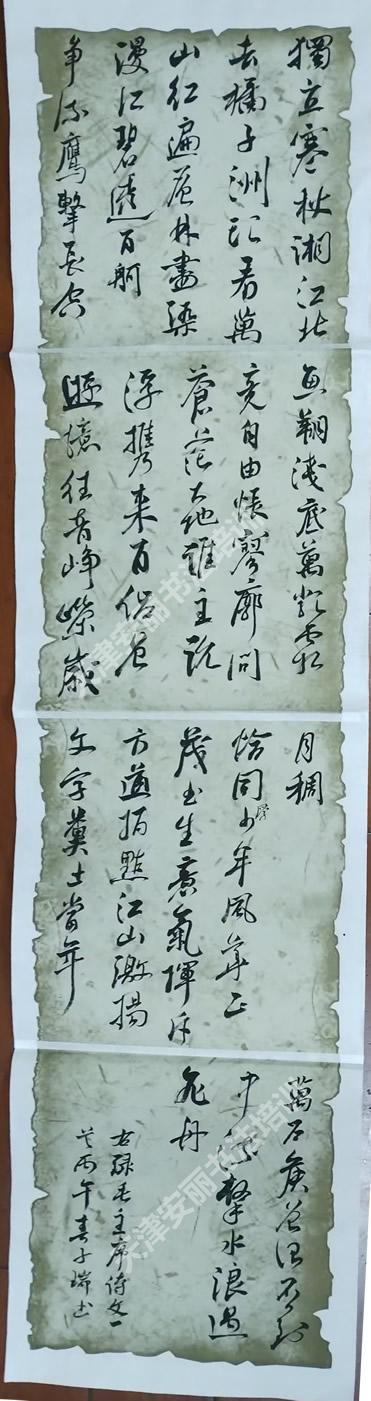 獨立寒秋湘江北
去橘子洲頭看萬
山红遍層林盡染
漫江碧透百舸
争流鷹擊長空
魚翔淺底萬類霜
竞自由悵寥廓問
蒼茫大地誰主沉
浮携來百侣曾
遊憶往昔崢嶸歲
月稠
恰同學少年風華正
茂書生意氣揮斥
方遒指點江山激揚
文字糞土當年
萬户侯曾記否到
中流擊水浪遏
飛舟
右録毛主席詩文一
首丙午春子瑞书
天津安丽书法培训
天津安丽书法培训